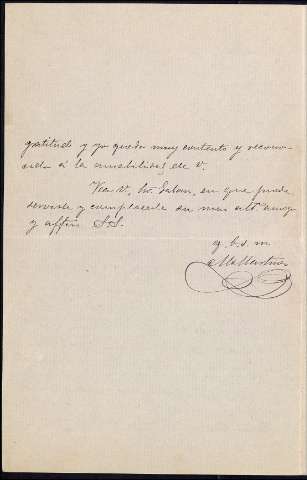 gratitud y yo quedo muy contento y recono-
cido á la amabilidad de V.
Vea V, Sr. en que puede
servirle y complacerle su mas att° amigo
y affmo S. S.
q. b. s. m.